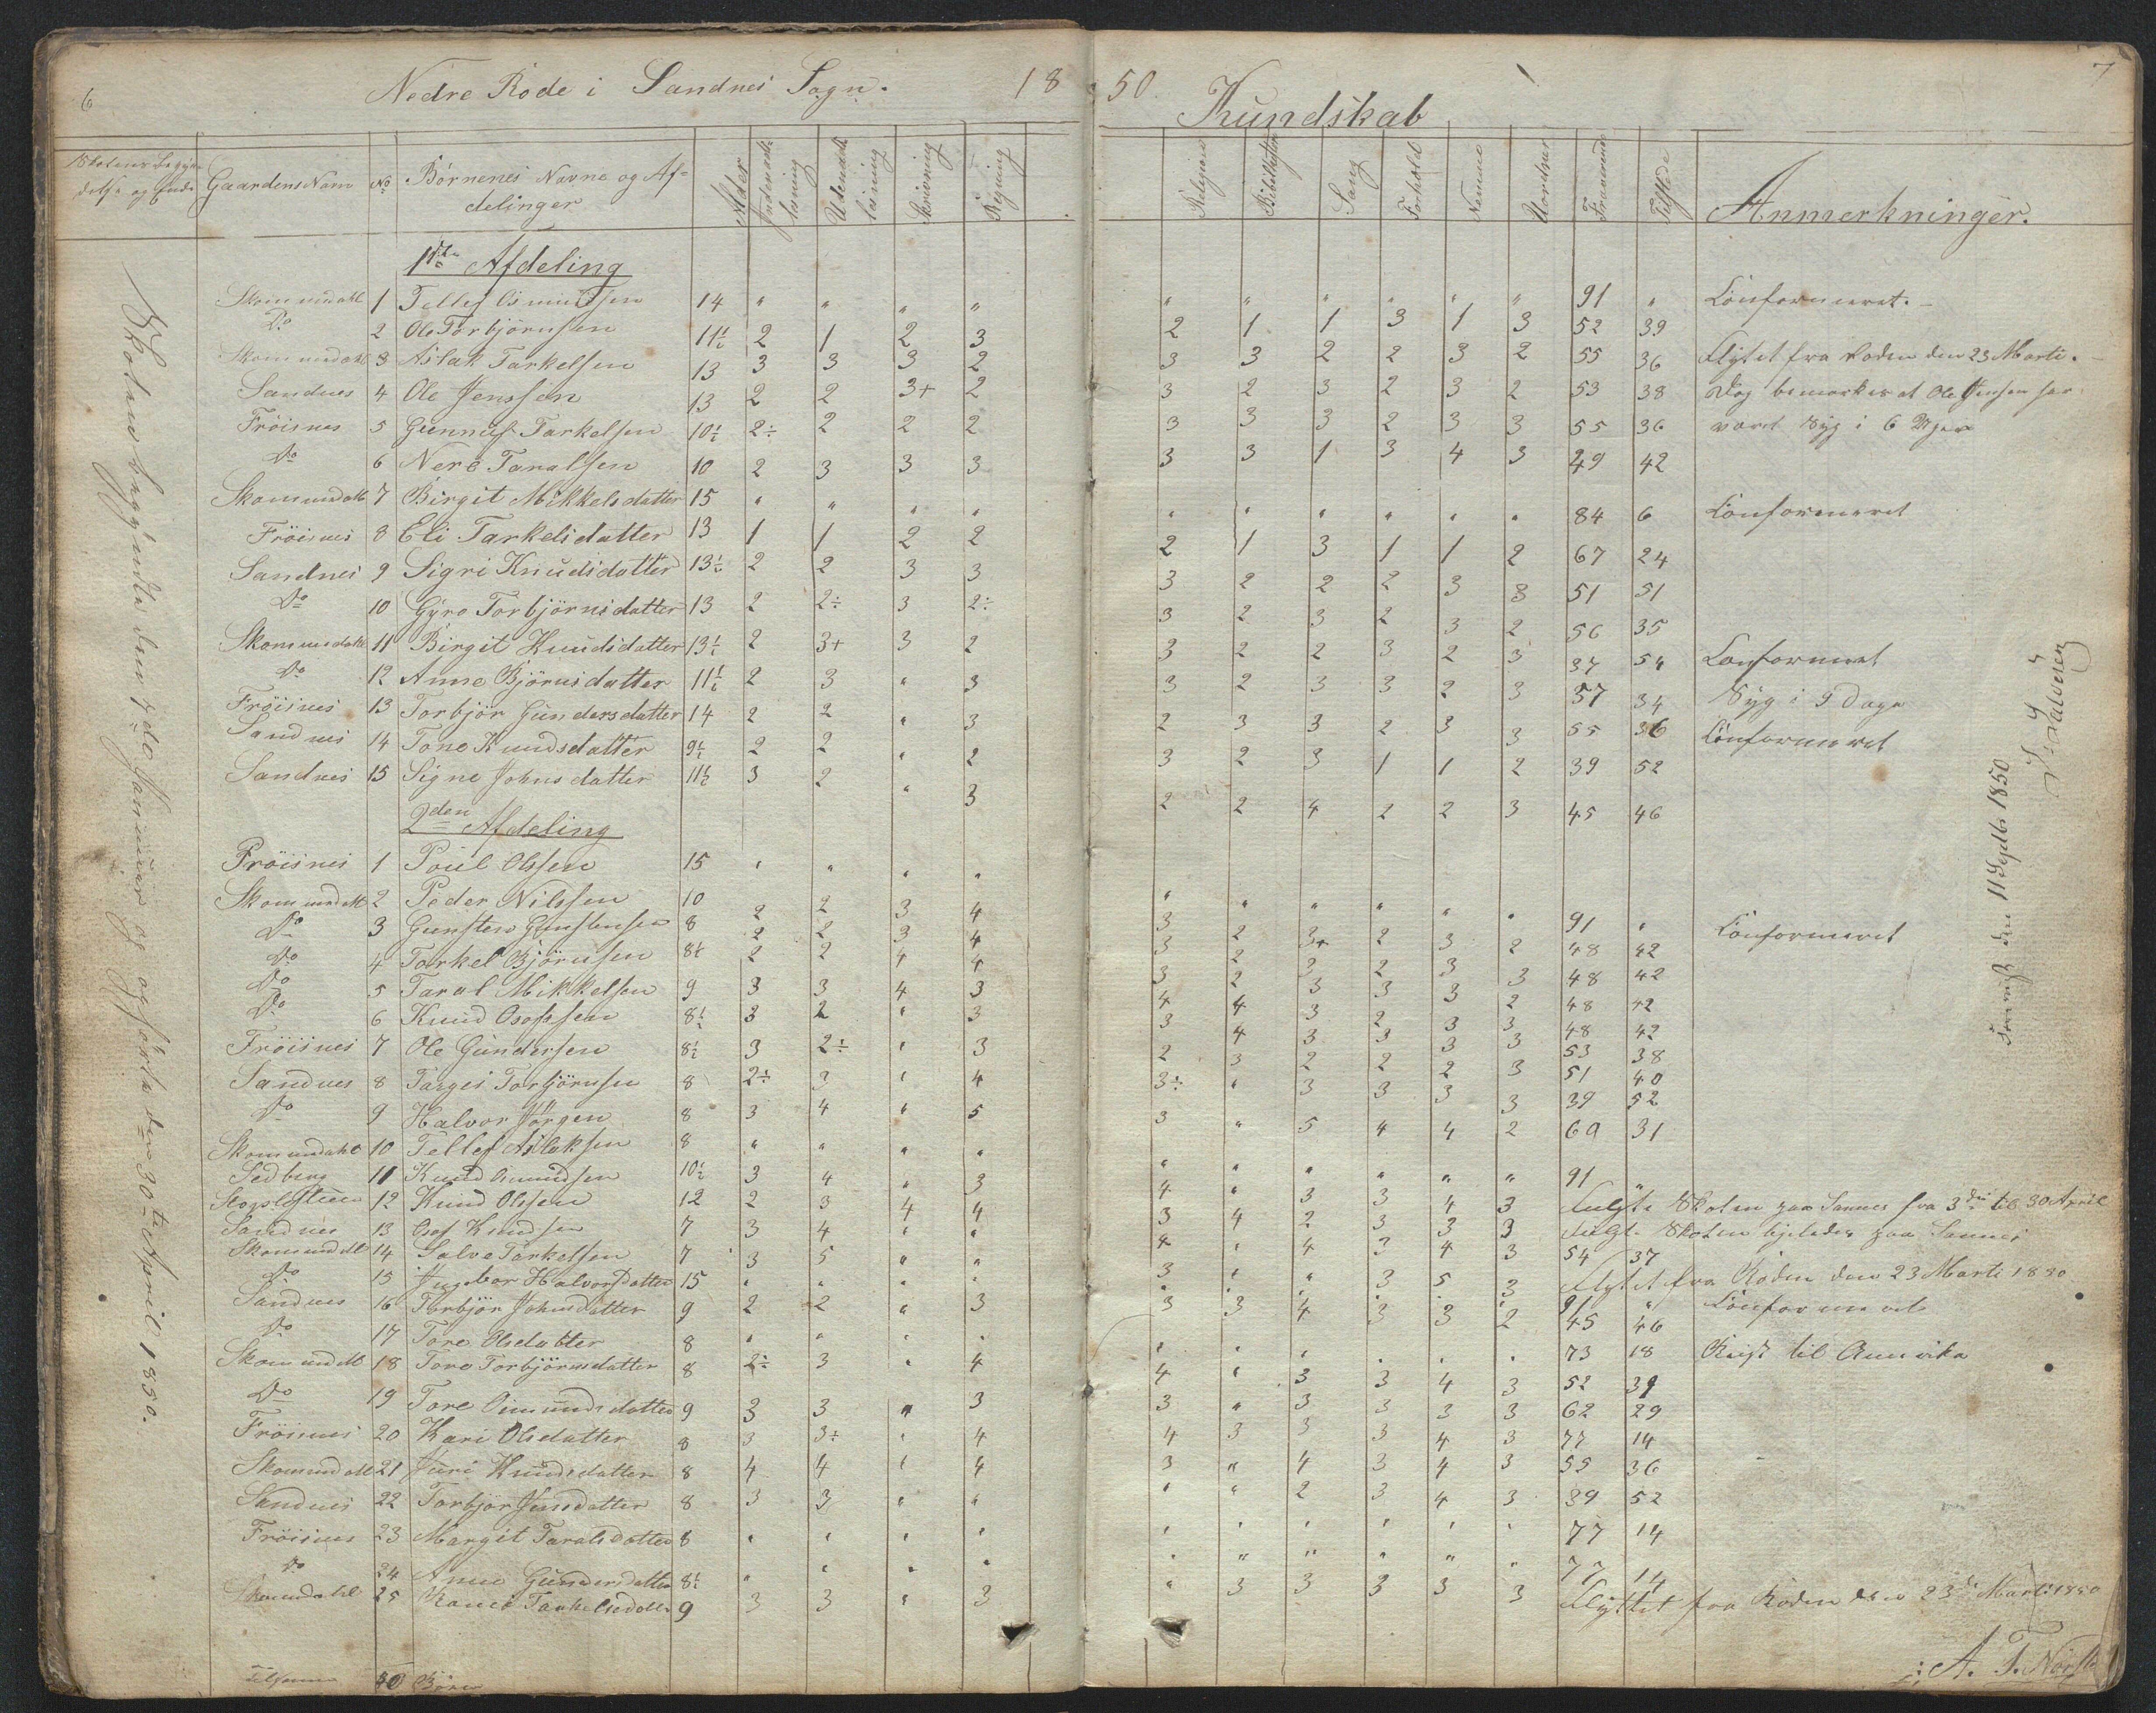 6 Nedre Rode i Sandnes Sogn. 18 50. 7
Kundskab
Skolens Begyn-
delse og Ende Gaardens Navn No Børnenes Navne og Af-
delinger Alder Indenads læsning Udenads læsning Skrivning Regning Religion Bibelhistorie Sang Forhold Nemme Uordner Fraværende Tilstede Anmerkninger.
1ste Afdeling
Skommedahl 1 Tellef Osmundsen 14 " " " " " " " " " " 91 " Confirmeret.
Do 2 Ole Torbjörnsen 11½ 2 1 2 3 2 1 1 3 1 3 52 39
Skommedahl 3 Aslak Tarkelsen 13 3 3 3 2 3 3 2 2 3 2 55 36 Flytet fra Roden den 23 Marti.
Sandnes 4 Ole Jenssen 13 2 2 3+ 2 3 2 3 2 3 2 53 38 Dog bemærkes at Ole Jensen har
Fröisnes 5 Gunnuf Tarkelsen 10½ 2÷ 2 2 2 3 3 3 2 3 3 55 36 været Syg i 6 Uger
Do 6 Nere Taralsen 10 2 3 3 3 3 3 1 3 4 3 49 42
Skommedahl 7 Birgit Mikkelsdatter 15 " " " " " " " " " " 84 6 Confirmeret
Fröisnes 8 Eli Tarkelsdatter 13 1 1 2 2 2 1 3 1 1 2 67 24
Sandnes 9 Sigri Knudsdatter 13½ 2 2 3 3 3 2 2 2 3 3 51 51
Do 10 Gyro Torbjörnsdatter 13 2 2÷ 3 2÷ 3 2 3 2 3 2 56 35
Skommedahl 11 Birgit Knudsdatter 13½ 2 3+ 3 2 3 2 2 3 2 3 37 54 Confirmeret
Do 12 Anne Björnsdatter 11½ 2 3 " 3 3 2 3 3 2 3 57 34 Syg i 9 Dage
Fröisnes 13 Torbjör Gundersdatter 14 2 2 " 3 2 3 3 2 3 3 55 36 Confirmeret
Sandnes 14 Tone Knudsdatter 9½ 2 2 " 2 3 2 3 1 1 2 39 52
Sandnes 15 Signe Johnsdatter 11½ 3 2 " 3 2 2 4 2 2 3 45 46
2den Afdeling
Fröisnes 1 Poul Olssen 15 " " " " " " " " " " 91 " Confirmeret
Skommedahl 2 Peder Nilssen 10 2 2 3 4 3 2 3+ 2 3 2 48 42
Do 3 Gunsten Gunstensen 8 2 2 3 4 3 2 3 2 3 3 48 42
Do 4 Torkel Björnsen 8½ 2 2 4 4 3 2 3 3 3 2 48 42
Do 5 Taral Mikkelsen 9 3 3 4 3 4 4 3 2 3 3 48 42
Do 6 Knud Osofssen 8½ 3 2 " 3 3 4 3 3 3 3 53 38
Fröisnes 7 Ole Gundersen 8½ 3 2÷ " 3 2 3 2 2 2 3 51 40
Sandnes 8 Targei Torbjörnsen 8 2÷ 3 " 4 3÷ " 3 3 3 3 39 52
Do 9 Halvor Jörgen 8 3 4 " 5 3 " 5 4 4 2 60 31
Skommedahl 10 Tellef Aslaksen 8 " " " " " " " " " " 91 "
Sedberg 11 Knud Aimundsen 10½ 3 4 " 3 4 " 3 3 4 3 Fulgte Skolen paa Sannes fra 3die til 30 April
12 Knud Olssen 12 2 3 4 4 3 4 2 3 3 3 Fulgt Skolen ligeledes paa Sannes
Sandnes 13 Osof Knudsen 7 3 4 " " 4 " 4 3 4 3 54 37
Skommedahl 14 Salve Tarkelsen 7 3 5 " " 3 " " 3 5 3 Flytet fra Roden den 23 Marti 1850
Do 15 Ingebor Halvorsdatter 15 " " " " " " " " " " 91 " Confirmeret
Sandnes 16 Torbjör Johnsdatter 9 2 2 " 3 3 3 4 3 3 2 45 46
Do 17 Tore Olsdatter 8 " " " " " " " " " " 73 18 Reist til Amerika
Skommedahl 18 Tore Torbjörnsdatter 8 2÷ 3 " 4 4 " 3 3 4 3 52 39
Do 19 Tore Osmundsdatter 9 3 3 " 3 3 " 3 3 3 3 62 29
Fröisnes 20 Kari Olsdatter 8 3 3÷ " 4 4 3 3 3 4 3 77 14
Skommedahl 21 Juri Knudsdatter 8 4 4 " 4 3 " 4 3 4 3 55 36
Sandnes 22 Torbjör Jensdatter 8 3 3 " " " " 2 3 4 3 39 52
Fröisnes 23 Margit Taralsdatter 8 " " " " " " " " " " 77 14
Do 24 Anne Gundersdatter 8½ " " " " " " " " " " 77 14
Skommedahl 25 Tarkelsdatter 9 3 3 " 3 " 3 3 3 3 3 Flyttet fra Roden den 23de Marti 1850
Tilsammen 40 Börn
A. T.
Skolen begyndte den 7de Januar og ophörte den 30te April 1850.
den 11 Septbr 1850